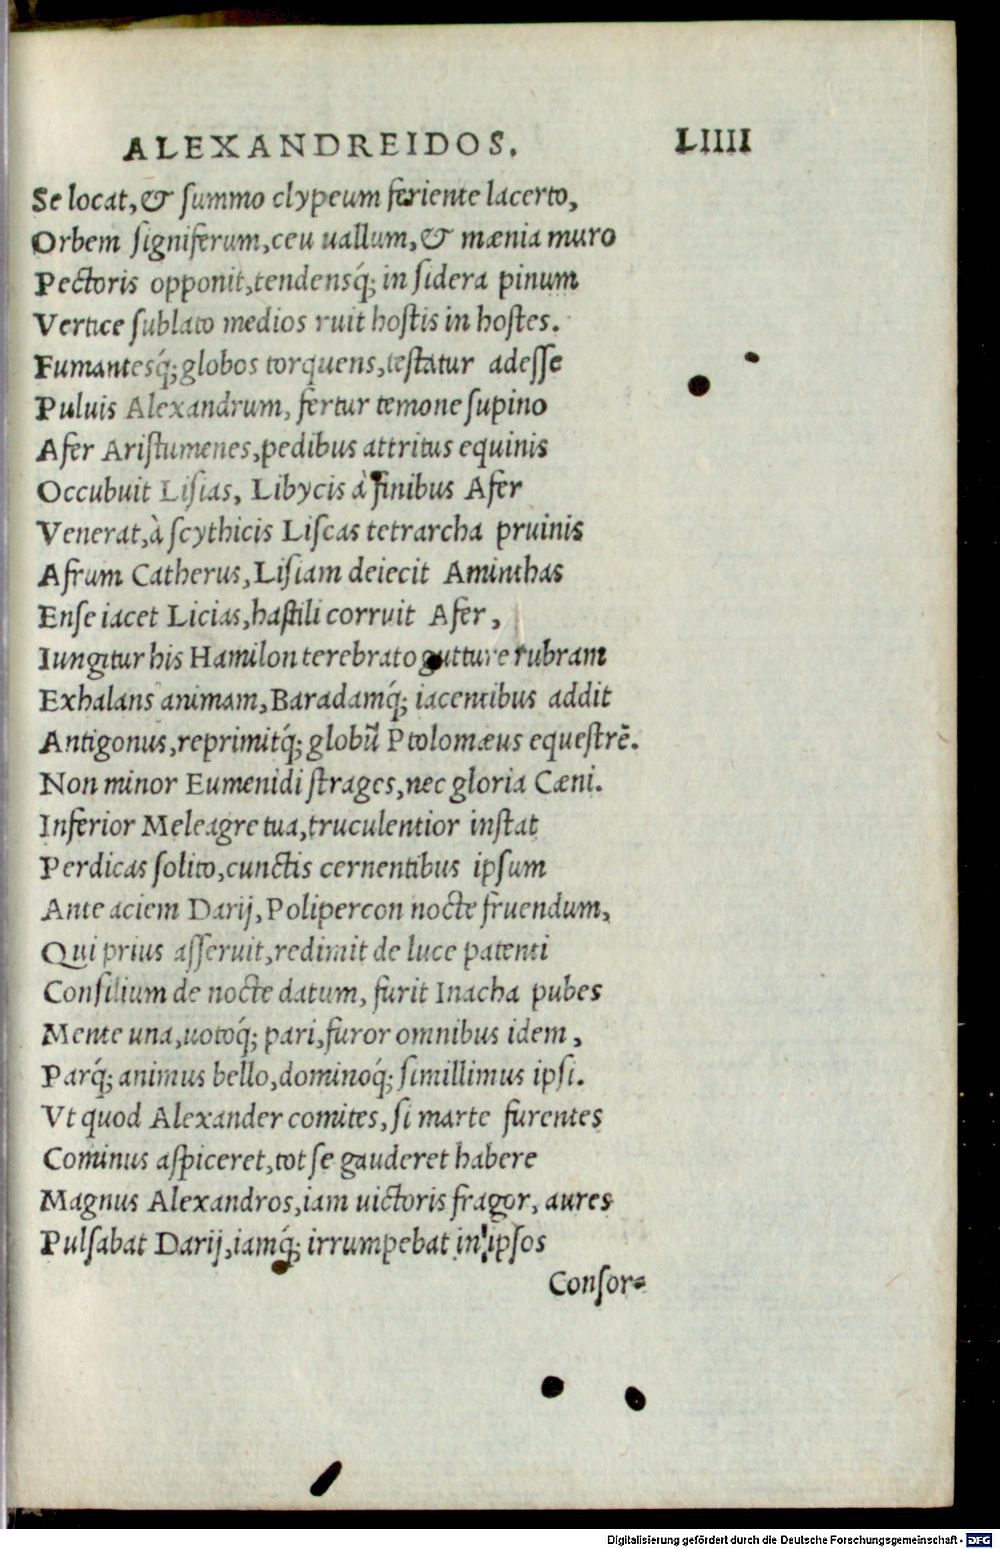 ALEXANDREIDOS. LIIII
Se locat, & ſummo clypeum feriente lacerto,
Orbem ſigniferum, ceu uallum, & mænia muro
Pectoris opponit, tendensq́; in ſidera pinum
Vertice ſublato medios ruit hoſtis in hoſtes.
Fumantesq́; globos torquens, teſtatur adeſſe
Puluis Alexandrum, fertur temone ſupino
Afer Ariſtumenes, pedibus attritus equinis
Occubuit Liſias, Libycis à finibus Afer
Venerat, à ſcythicis Liſcas tetrarcha pruinis
Afrum Catherus, Liſiam deiecit Aminthas
Enſe iacet Licias, haſtili corruit Afer,
Iungitur his Hamilon terebrato gutture rubram
Exhalans animam, Baradamq́; iacentibus addit
Antigonus, reprimitq́; globũ Ptolomæus equeſtrẽ.
Non minor Eumenidi ſtrages, nec gloria Cæni.
Inferior Meleagre tua, truculentior inſtat
Perdicas ſolito, cunctis cernentibus ipſum
Ante aciem Darij, Polipercon nocte fruendum,
Qui prius aſſeruit, redimit de luce patenti
Conſilium de nocte datum, furit Inacha pubes
Mente una, uotoq́; pari, furor omnibus idem,
Parq́; animus bello, dominoq́; ſimillimus ipſi.
Vt quod Alexander comites, ſi marte furentes
Cominus aſpiceret, tot ſe gauderet habere
Magnus Alexandros, iam uictoris fragor, aures
Pulſabat Darij, iamq́; irrumpebat in ipſos
Conſor-
Digitalisierung gefördert durch die Deutsche Forschungsgemeinschaft - DFG